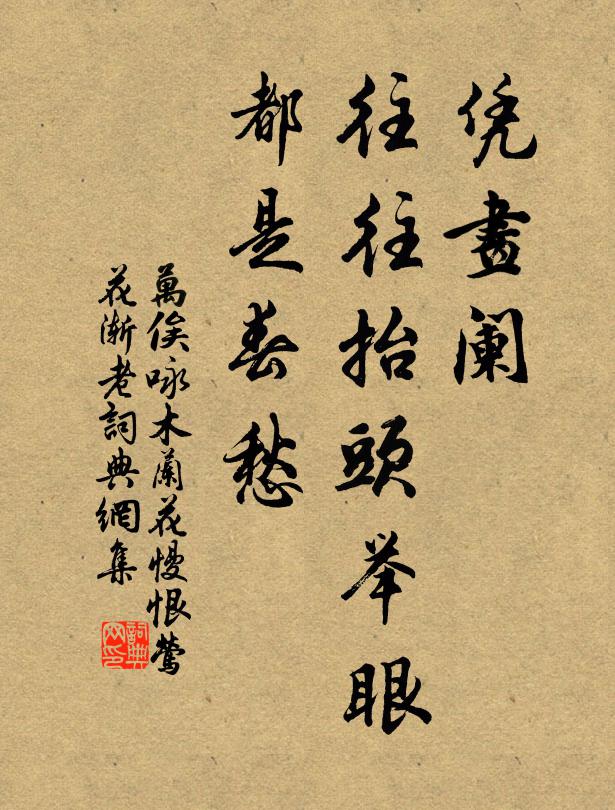 凭畫阑
往往抬頭举眼
都是春愁
萬俟咏木蘭花慢恨鶯
花渐老詞典網集
詞典
网印